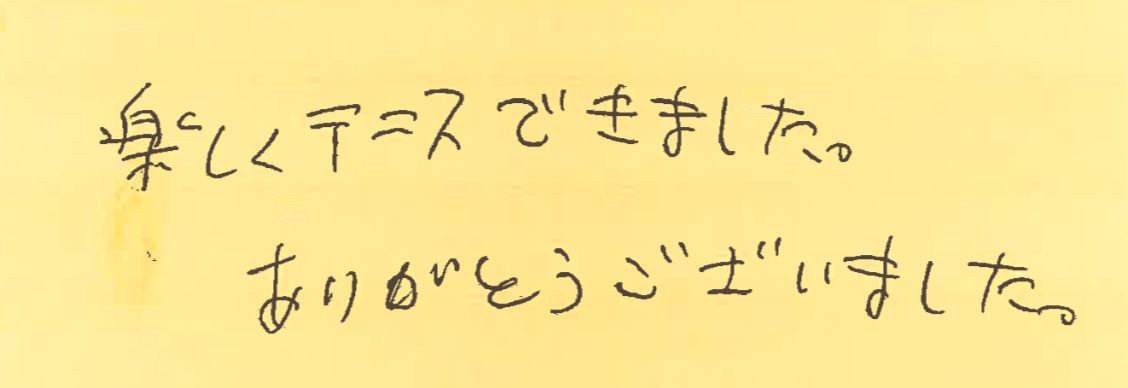 楽しくテニスできました。
ありがとうございました。